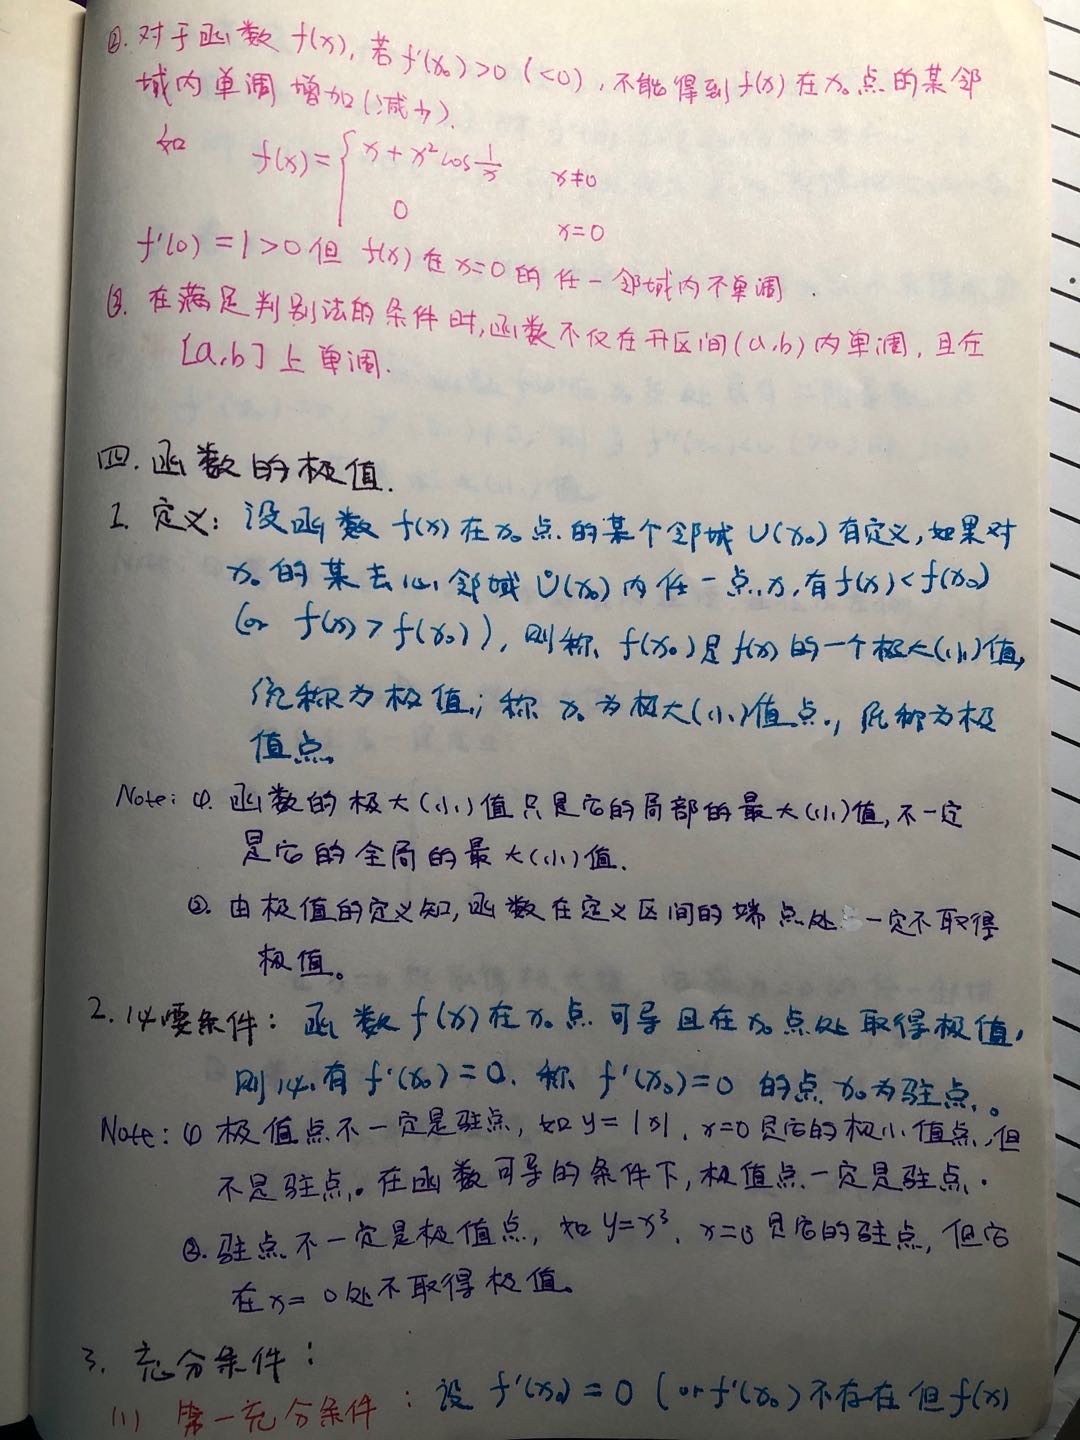 ②. 对于函数 f(x), 若 f'(x₀)>0 (<0), 不能得到 f(x) 在 x₀点的某邻
域内单调增加(减少).
如 f(x)={ x+x²cos 1/x x≠0
0 x=0
f'(0)=1>0 但 f(x) 在 x=0 的任一邻域内不单调.
③. 在满足判别法的条件时, 函数不仅在开区间(a,b)内单调, 且在
[a,b]上单调.
四. 函数的极值.
1. 定义: 设函数 f(x) 在 x₀点的某个邻域 U(x₀) 有定义, 如果对
x₀的某去心邻域 Ů(x₀) 内任一点 x, 有 f(x)<f(x₀)
(or f(x)>f(x₀)), 则称 f(x₀) 是 f(x) 的一个极大(小)值,
统称为极值; 称 x₀为极大(小)值点, 统称为极
值点.
Note: ①. 函数的极大(小)值只是它的局部的最大(小)值, 不一定
是它的全局的最大(小)值.
②. 由极值的定义知, 函数在定义区间的端点处一定不取得
极值。
2. 必要条件: 函数 f(x) 在 x₀点可导且在 x₀点处取得极值,
则必有 f'(x₀)=0. 称 f'(x₀)=0 的点 x₀为驻点.。
Note: ① 极值点不一定是驻点, 如 y=|x|, x=0是它的极小值点, 但
不是驻点。在函数可导的条件下, 极值点一定是驻点.
②. 驻点不一定是极值点, 如 y=x³, x=0 是它的驻点, 但它
在 x=0处不取得极值。
3. 充分条件:
(1) 第一充分条件: 设 f'(x₀)=0 (or f'(x₀)不存在但 f(x)